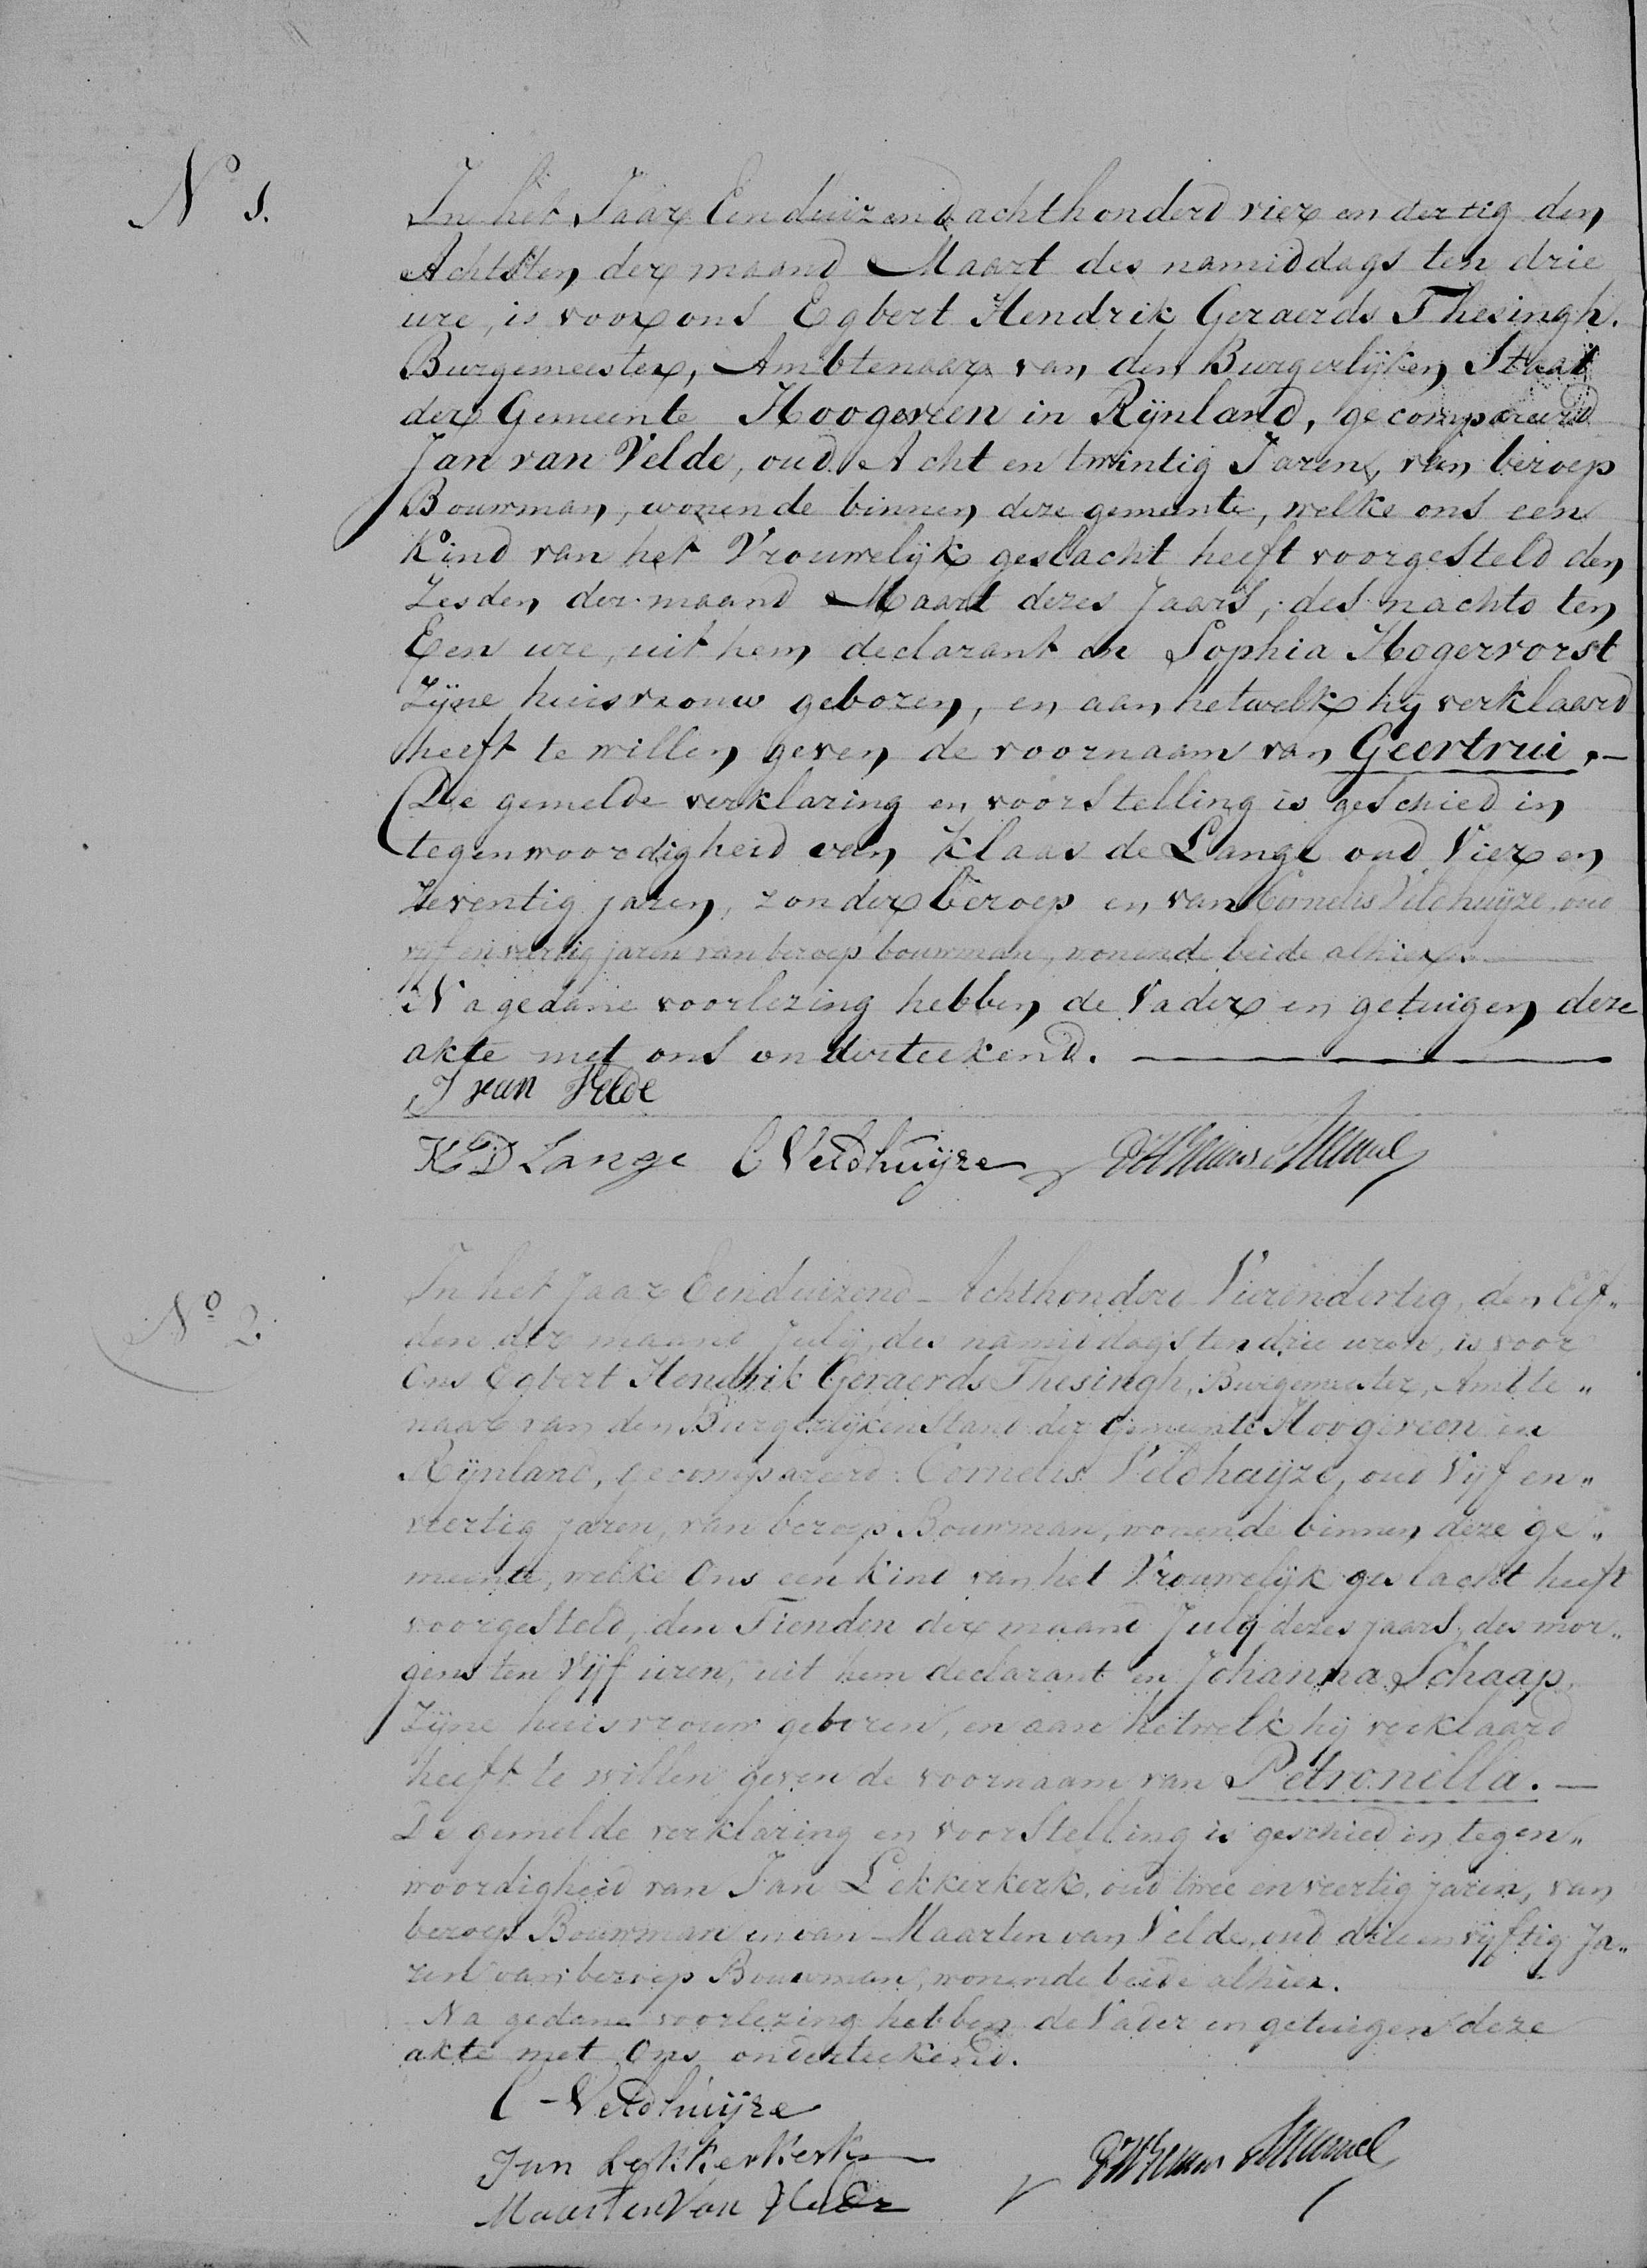 Nº 1.
In het Jaar Eenduizend achthonderd vier en dertig den
Achtsten der maand Maart des namiddags ten drie
ure, is voor ons Egbert Hendrik Geraerds Thesingh.
Burgemeester, Ambtenaar van den Burgerlijken Staat
der Gemeente Hoogeveen in Rijnland, gecompareerd
Jan van Velde, oud Acht en twintig Jaren, van beroep
Bouwman, wonende binnen deze gemeente, welke ons een
Kind van het Vrouwelijk geslacht heeft voorgesteld den
Zesden der maand Maart dezes Jaars, des nachts ten
Een ure, uit hem declarant en Sophia Hogervorst
Zijne huisvrouw geboren, en aan hetwelk hij verklaard
heeft te willen geven de voornaam van Geertrui.—
De gemelde verklaring en voorstelling is geschied in
tegenwoordigheid van Klaas de Lange oud Vier en
Zeventig jaren, zonder beroep en van Cornelis Veldhuijze, oud
vijf en veertig jaren van beroep bouwman, wonende beide alhier.
Na gedane voorlezing hebben de Vader en getuigen deze
akte met ons onderteekend.
J van Velde
K D Lange C Veldhuijze
Nº 2.
In het Jaar Eenduizend Achthonderd Vierendertig, den Elf„
den der maand Julij, des namiddags ten drie uren, is voor
Ons Egbert Hendrik Geraerds Thesingh, Burgemeester, Ambte„
naar van den Burgerlijken Stand der gemeente Hoogeveen in
Rijnland, gecompareerd Cornelis Veldhuijze, oud Vijf en„
veertig jaren, van beroep Bouwman, wonende binnen deze ge„
meente, welke Ons een Kind van het Vrouwelijk geslacht heeft
voorgesteld, den Tienden der maand Julij dezes jaars, des mor„
gens ten Vijf uren, uit hem declarant en Johanna Schaap,
Zijne huisvrouw geboren, en aan hetwelk hij verklaard
heeft te willen geven de voornaam van Petronella.—
De gemelde verklaring en voorstelling is geschied in tegen„
woordigheid van Jan Lekkerkerk, oud twee en veertig jaren, van
beroep Bouwman en van Maarten van Velde, oud drie en vijftig Ja„
ren van beroep Bouwman, wonende beide alhier.
Na gedane voorlezing hebben de Vader en getuigen deze
akte met Ons onderteekend.
C Veldhuijze
Jan Lekkerkerk
Maarten Van Velde